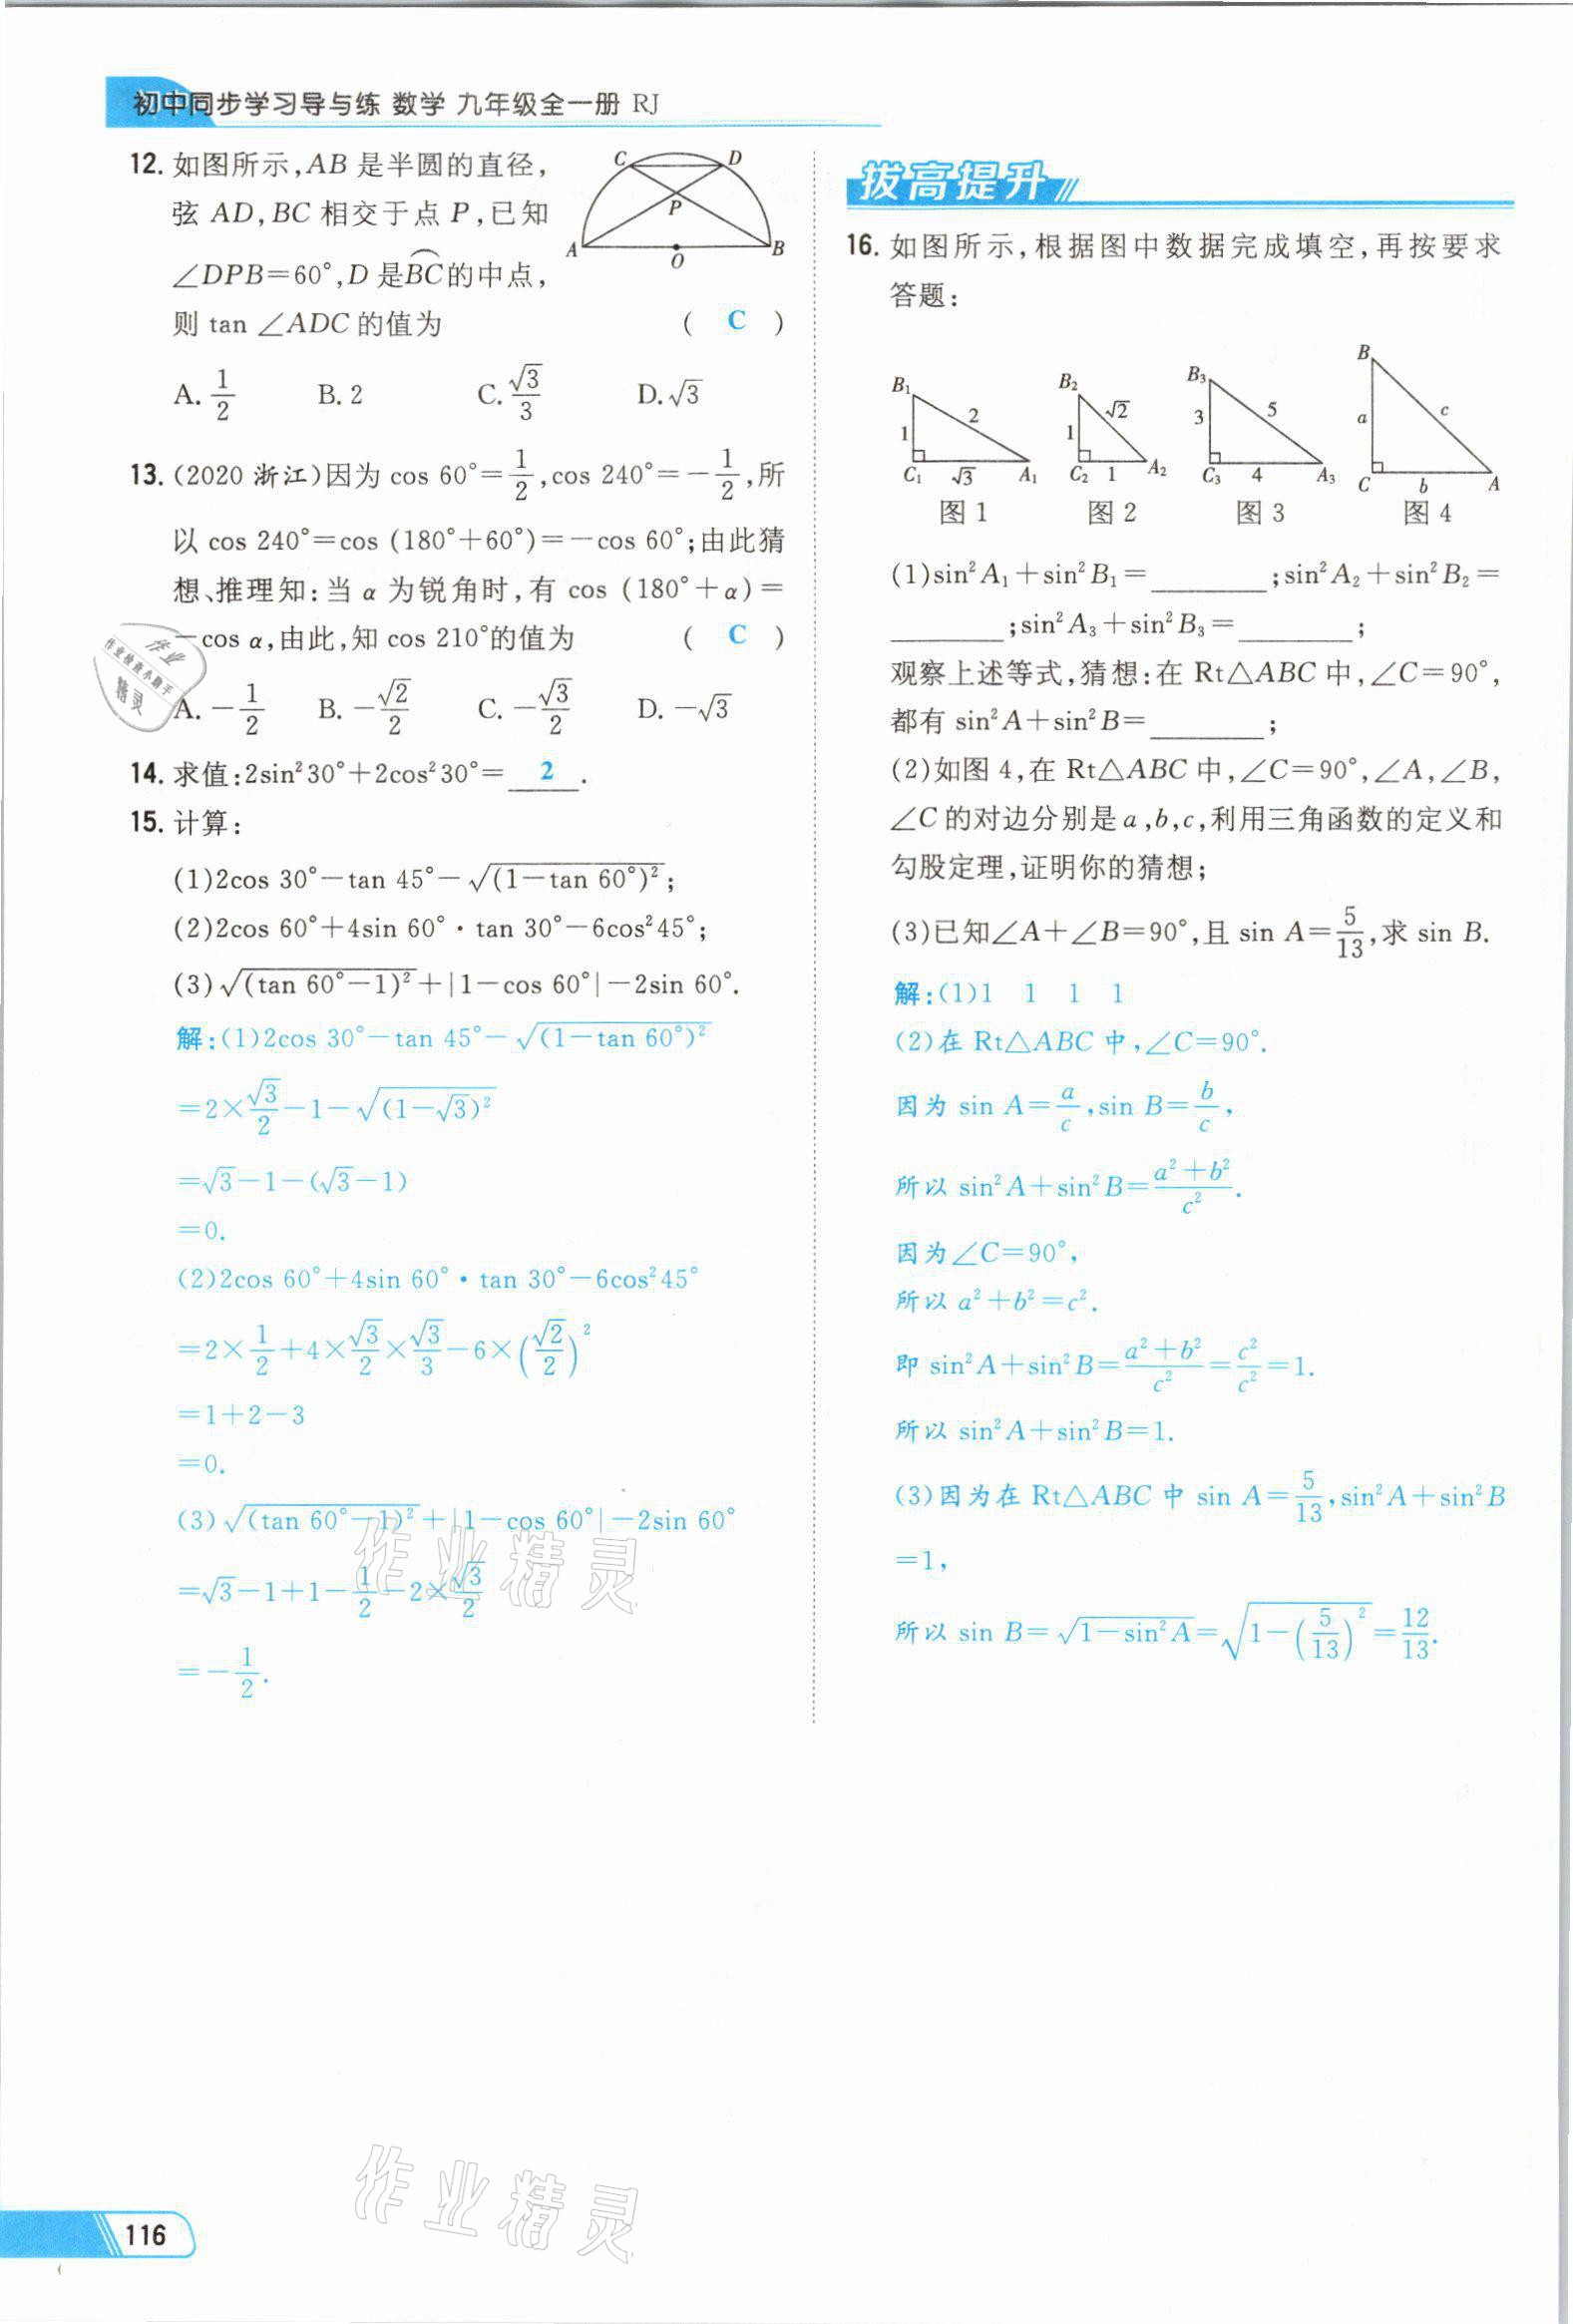 初中同步学习导与练 数学 九年级全一册 RJ
12. 如图所示,AB 是半圆的直径,
弦 AD,BC 相交于点 P,已知
∠DPB=60°,D 是B͡C的中点,
则 tan ∠ADC 的值为 ( C )
A. 1/2 B. 2 C. √3/3 D. √3
C D P A O B
13. (2020 浙江)因为 cos 60°=1/2,cos 240°=-1/2,所
以 cos 240°=cos (180°+60°)=-cos 60°;由此猜
想、推理知:当 α 为锐角时,有 cos (180°+α)=
-cos α,由此,知 cos 210°的值为 ( C )
A. -1/2 B. -√2/2 C. -√3/2 D. -√3
14. 求值:2sin²30°+2cos²30°= 2 .
15. 计算:
(1)2cos 30°-tan 45°-√((1-tan 60°)²);
(2)2cos 60°+4sin 60°·tan 30°-6cos²45°;
(3)√((tan 60°-1)²)+|1-cos 60°|-2sin 60°.
解:(1)2cos 30°-tan 45°-√((1-tan 60°)²)
=2×√3/2-1-√((1-√3)²)
=√3-1-(√3-1)
=0.
(2)2cos 60°+4sin 60°·tan 30°-6cos²45°
=2×1/2+4×√3/2×√3/3-6×(√2/2)²
=1+2-3
=0.
(3)√((tan 60°-1)²)+|1-cos 60°|-2sin 60°
=√3-1+1-1/2-2×√3/2
=-1/2.
拔高提升
16. 如图所示,根据图中数据完成填空,再按要求
答题:
B₁ 1 2 C₁ √3 A₁
B₂ 1 √2 C₂ 1 A₂
B₃ 3 5 C₃ 4 A₃
B a c C b A
图 1 图 2 图 3 图 4
(1)sin²A₁+sin²B₁=________;sin²A₂+sin²B₂=
________;sin²A₃+sin²B₃=________;
观察上述等式,猜想:在 Rt△ABC 中,∠C=90°,
都有 sin²A+sin²B=________;
(2)如图 4,在 Rt△ABC 中,∠C=90°,∠A,∠B,
∠C 的对边分别是 a,b,c,利用三角函数的定义和
勾股定理,证明你的猜想;
(3)已知∠A+∠B=90°,且 sin A=5/13,求 sin B.
解:(1)1 1 1 1
(2)在 Rt△ABC 中,∠C=90°.
因为 sin A=a/c,sin B=b/c,
所以 sin²A+sin²B=(a²+b²)/c².
因为∠C=90°,
所以 a²+b²=c².
即 sin²A+sin²B=(a²+b²)/c²=c²/c²=1.
所以 sin²A+sin²B=1.
(3)因为在 Rt△ABC 中 sin A=5/13,sin²A+sin²B
=1,
所以 sin B=√(1-sin²A)=√(1-(5/13)²)=12/13.
作业
作业检查小助手
精灵
作业精灵
作业精灵
116